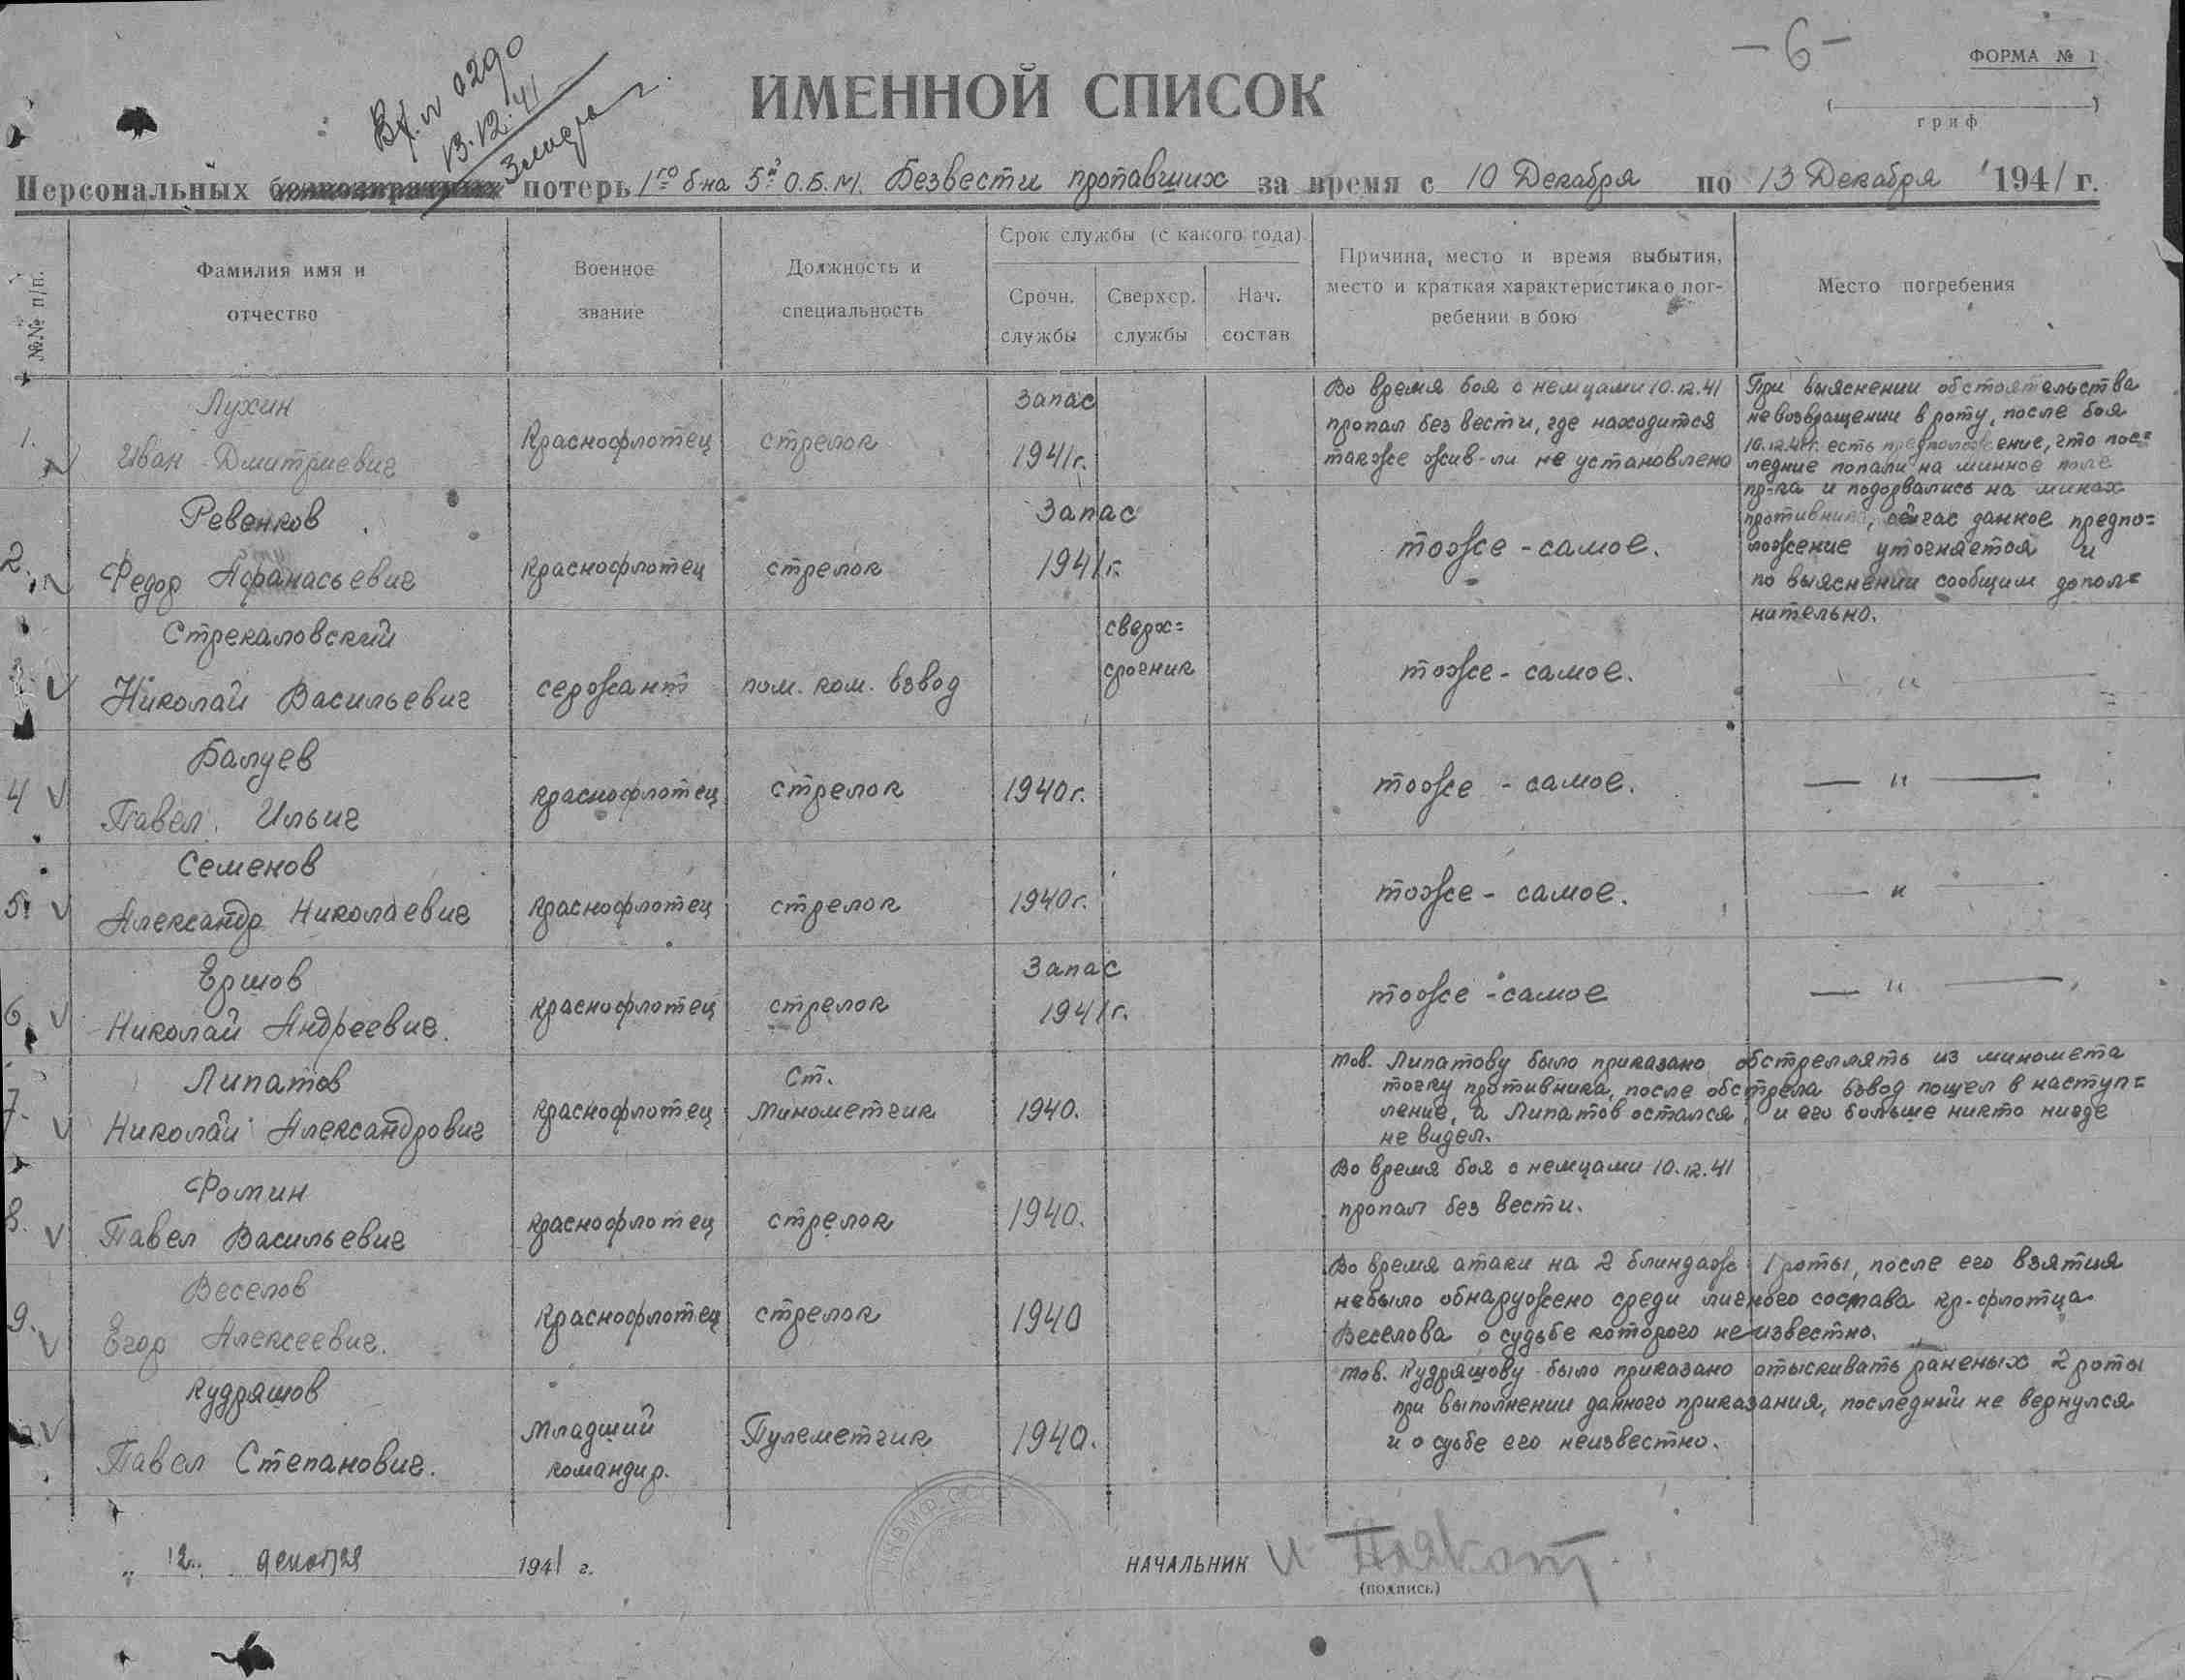 - 6 -
ФОРМА № 1
Вх. № 0290
13.12.41
ИМЕННОЙ СПИСОК
гриф
Персональных безвозвратных потерь 1го б-на 5й О.Б.М. Безвести пропавших за время с 10 Декабря по 13 Декабря 1941 г.
№№ п/п.
Фамилия имя и отчество
Военное звание
Должность и специальность
Срок службы (с какого года)
Срочн. службы
Сверхср. службы
Нач. состав
Причина, место и время выбытия, место и краткая характеристика о погребении в бою
Место погребения
1. Лухин Иван Дмитриевич
Краснофлотец
стрелок
Запас 1941г.
Во время боя с немцами 10.12.41
пропал без вести, где находится
также жив-ли не установлено
При выяснении обстоятельства
невозвращении в роту, после боя
10.12.41г. есть предположение, что пос=
ледние попали на минное поле
пр-ка и подорвались на минах
противника, сейчас данное предпо=
ложение уточняется и
по выяснении сообщим допол=
нительно.
2. Ревенков Федор Афанасьевич
Краснофлотец
стрелок
Запас 1941г.
тоже - самое.
3. Стрекаловский Николай Васильевич
сержант
пом. ком. взвод
сверх=
срочник
тоже - самое.
— " —
4 Балуев Павел Ильич
краснофлотец
стрелок
1940г.
тоже - самое.
— " —
5. Семенов Александр Николаевич
краснофлотец
стрелок
1940г.
тоже - самое.
— " —
6. Ершов Николай Андреевич.
краснофлотец
стрелок
Запас 1941г.
тоже - самое
— " —
7. Липатов Николай Александрович
краснофлотец
Ст. минометчик
1940.
тов. Липатову было приказано обстрелять из миномета
точку противника, после обстрела взвод пошел в наступ=
ление, а Липатов остался, и его больше никто нигде
не видел.
8. Фомин Павел Васильевич
краснофлотец
стрелок
1940.
Во время боя с немцами 10.12.41
пропал без вести.
9. Веселов Егор Алексеевич.
Краснофлотец
стрелок
1940
Во время атаки на 2 блиндаж 1 роты, после его взятия
небыло обнаружено среди личного состава кр-флотца
Веселова о судьбе которого неизвестно.
Кудряшов Павел Степанович.
Младший командир.
Пулеметчик
1940.
тов. Кудряшову было приказано отыскивать раненых 2 роты
при выполнении данного приказания, последний не вернулся
и о судьбе его неизвестно.
„ 12 „ декабря 1941 г.
НАЧАЛЬНИК
(подпись)